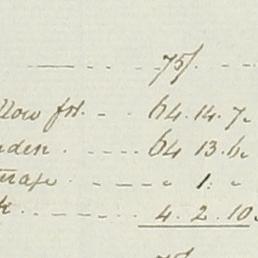 75/.
llow fst. - . 64. 14. 7.
nden . - - - . 64 13. 6.
erage . - - - - „ 1. „
k . . - - - . 4. 2. 10.